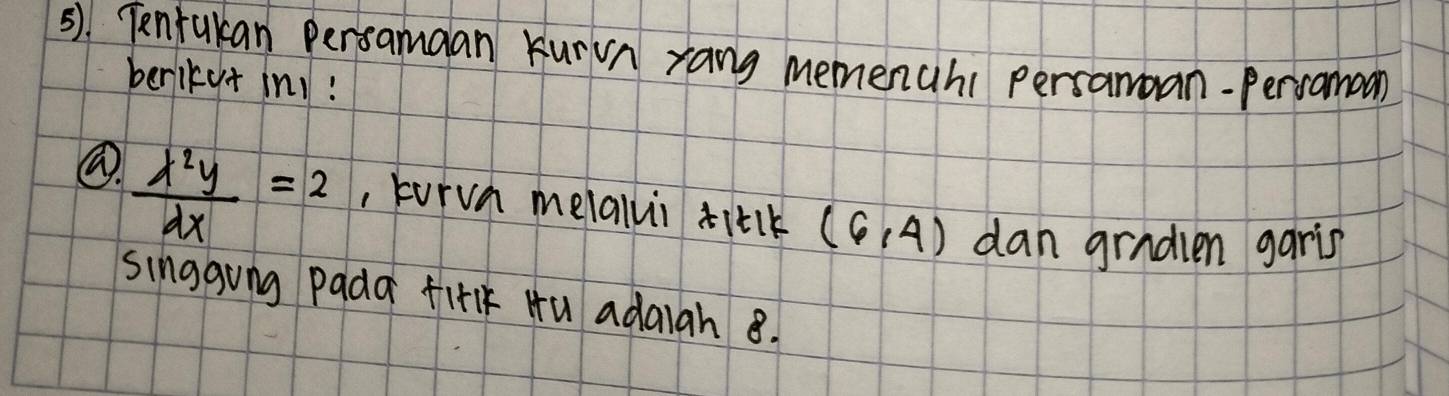 5). Tentukan persamaan kurva yang memenuhi persamaan-persamaan
berikut ini :
a. x²y/dx = 2, kurva melalui titik (6,4) dan gradien garis
singgung pada titik itu adalah 8.